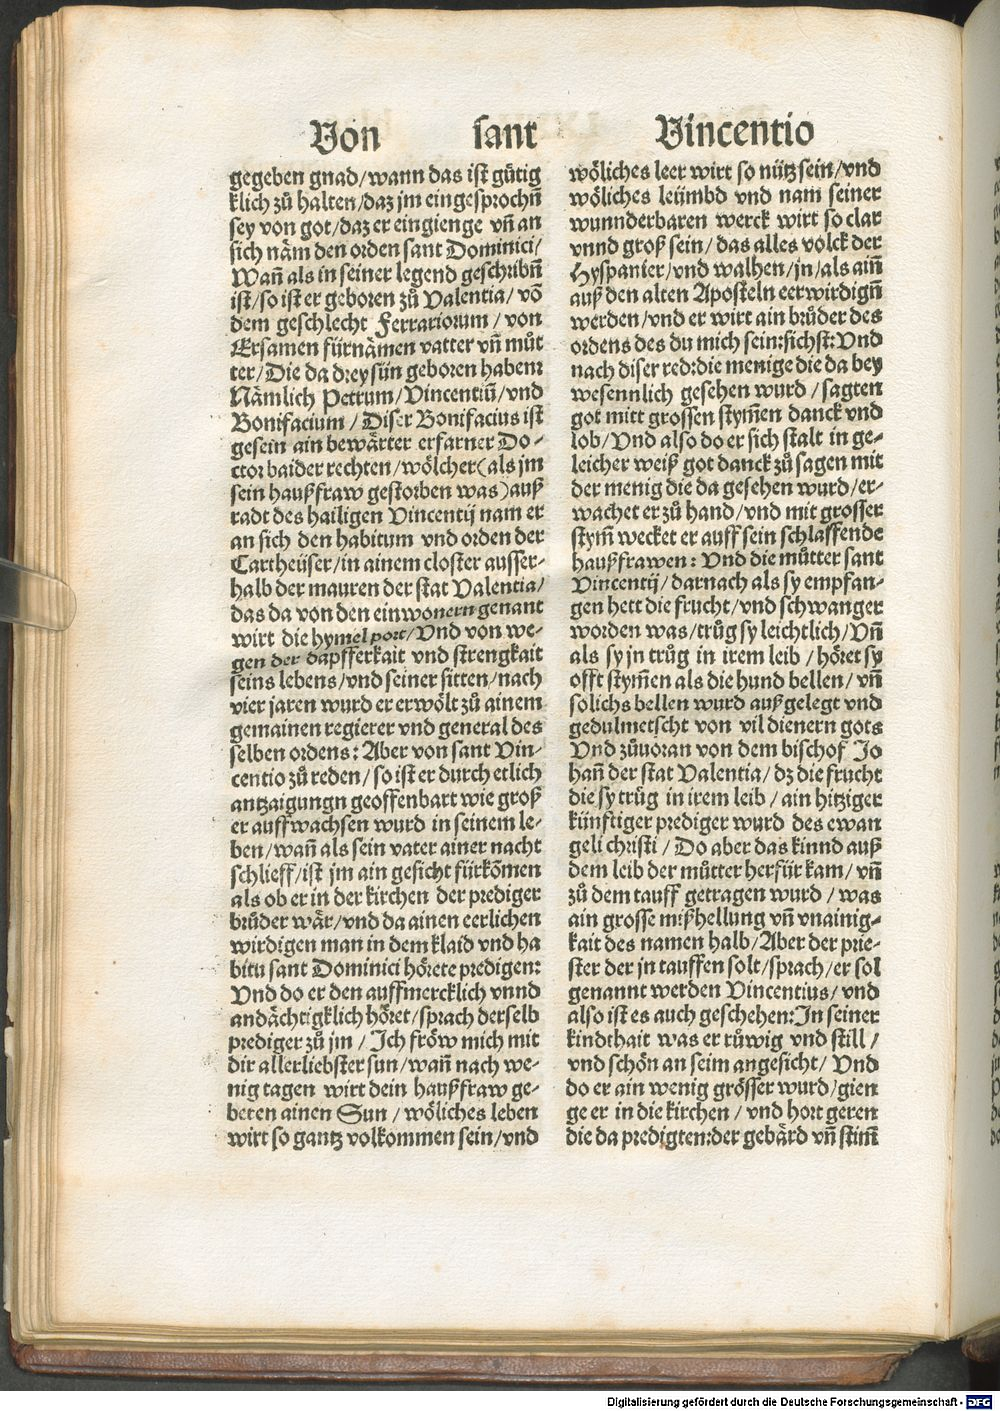 Von sant Vincentio
gegeben gnad/wann das ist gütig
klich zů halten/daz jm eingesprochn̄
sey von got/daz er eingienge vn̄ an
sich näm den orden sant Dominici/
Wan̄ als in seiner legend geschribn̄
ist/so ist er geboren zů Valentia/ võ
dem geschlecht Ferrariorum / von
Ersamen fürnämen vatter vn̄ můt
ter/Die da drey sün geboren haben:
Nämlich Petrum/Vincentiū/vnd
Bonifacium / Diser Bonifacius ist
gesein ain bewärter erfarner Do-
ctor baider rechten/wölcher(als jm
sein haußfraw gestorben was)auß
radt des hailigen Vincentij nam er
an sich den habitum vnd orden der
Cartheüser/in ainem closter ausser-
halb der mauren der stat Valentia/
das da von den einwonern genant
wirt die hymel port/Vnd von we-
gen der dapfferkait vnd strengkait
seins lebens/vnd seiner sitten/nach
vier jaren wurd er erwölt zů ainem
gemainen regierer vnd general des
selben ordens: Aber von sant Vin-
centio zů reden/so ist er durch etlich
antzaigungn geoffenbart wie groß
er auffwachsen wurd in seinem le-
ben/wan̄ als sein vater ainer nacht
schlieff/ist jm ain gesicht fürkõmen
als ob er in der kirchen der prediger
brüder wär/vnd da ainen eerlichen
wirdigen man in dem klaid vnd ha
bitu sant Dominici hörete predigen:
Vnd do er den auffmercklich vnnd
andächtigklich höret/sprach derselb
prediger zů jm / Ich fröw mich mit
dir allerliebster sun/wan̄ nach we-
nig tagen wirt dein haußfraw ge-
beren ainen Sun / wöliches leben
wirt so gantz volkommen sein/vnd
wöliches leer wirt so nütz sein/vnd
wöliches leümbd vnd nam seiner
wunnderbaren werck wirt so clar
vnnd groß sein/das alles volck der
Hyspanier/vnd walhen/jn/als ain̄
auß den alten Aposteln eerwirdign̄
werden/vnd er wirt ain brůder des
ordens des du mich sein:sichst:Vnd
nach diser red:die menige die da bey
wesennlich gesehen wurd / sagten
got mitt grossen stym̄en danck vnd
lob/Vnd also do er sich stalt in ge-
leicher weiß got danck zů sagen mit
der menig die da gesehen wurd/er-
wachet er zů hand/vnd mit grosser
stym̄ wecket er auff sein schlaffende
haußfrawen: Vnd die můtter sant
Vincentij/ darnach als sy empfan-
gen hett die frucht/vnd schwanger
worden was/trůg sy leichtlich/Vn̄
als sy jn trůg in irem leib / höret sy
offt stym̄en als die hund bellen/ vn̄
solichs bellen wurd außgelegt vnd
gedulmetscht von vil dienern gots
Vnd zůuoran von dem bischof Jo
han̄ der stat Valentia/ dz die frucht
die sy trůg in irem leib / ain hitziger
künftiger prediger wurd des ewan
geli christi / Do aber das kinnd auß
dem leib der můtter herfür kam/ vn̄
zů dem tauff getragen wurd / was
ain grosse mißhellung vn̄ vnainig-
kait des namen halb/Aber der prie-
ster der jn tauffen solt/sprach/er sol
genannt werden Vincentius/ vnd
also ist es auch geschehen:In seiner
kindthait was er růwig vnd still /
vnd schön an seim angesicht/ Vnd
do er ain wenig grösser wurd/gien
ge er in die kirchen / vnd hort geren
die da predigten:der gebärd vn̄ stim̄
Digitalisierung gefördert durch die Deutsche Forschungsgemeinschaft - DFG